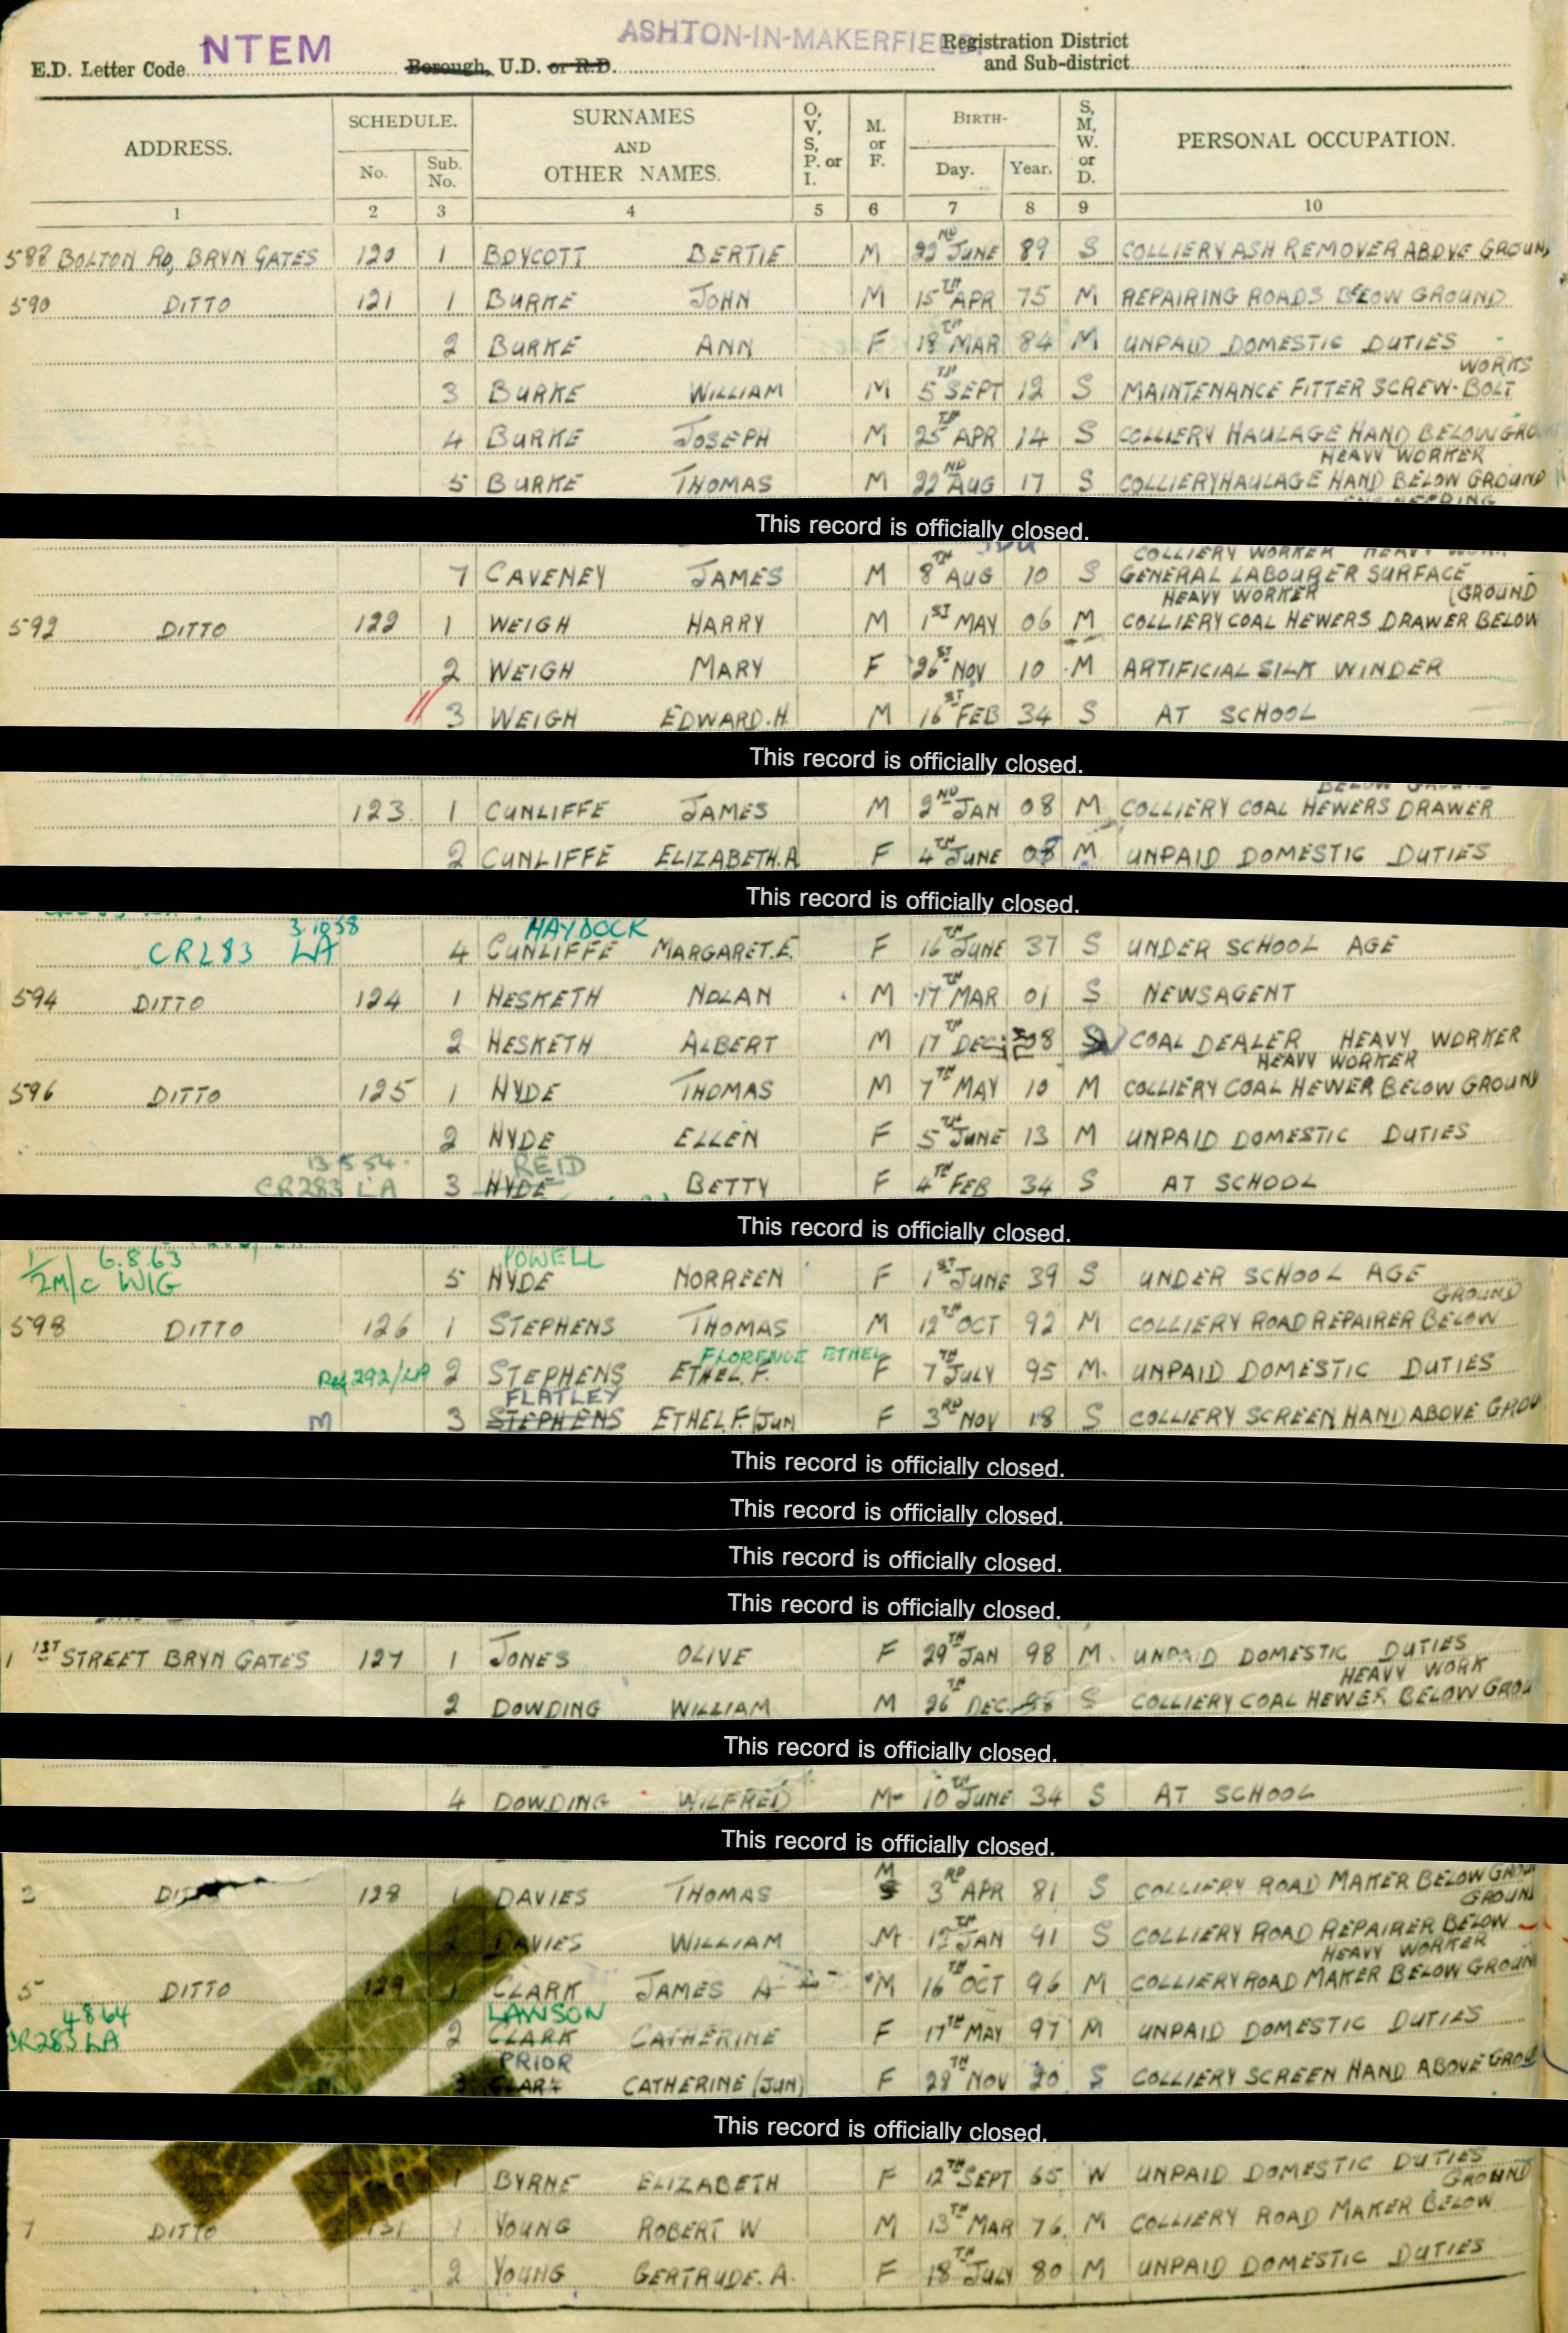 NTEM
ASHTON-IN-MAKERFIELD
E.D. Letter Code Borough, U.D. or R.D. Registration District and Sub-district
ADDRESS. SCHEDULE. No. Sub. No. SURNAMES AND OTHER NAMES. O, V, S, P. or I. M. or F. BIRTH- Day. Year. S, M, W. or D. PERSONAL OCCUPATION.
1 2 3 4 5 6 7 8 9 10
588 BOLTON RD, BRYN GATES 120 1 BOYCOTT BERTIE M 22ND JUNE 89 S COLLIERY ASH REMOVER ABOVE GROUND
590 DITTO 121 1 BURKE JOHN M 15TH APR 75 M REPAIRING ROADS BELOW GROUND
2 BURKE ANN F 18TH MAR 84 M UNPAID DOMESTIC DUTIES
WORKS
3 BURKE WILLIAM M 5TH SEPT 12 S MAINTENANCE FITTER SCREW-BOLT
4 BURKE JOSEPH M 25TH APR 14 S COLLIERY HAULAGE HAND BELOW GROUND
HEAVY WORKER
5 BURKE THOMAS M 22ND AUG 17 S COLLIERY HAULAGE HAND BELOW GROUND
ENGINEERING
This record is officially closed.
COLLIERY WORKER HEAVY WORK
7 CAVENEY JAMES M 8TH AUG 10 S GENERAL LABOURER SURFACE
HEAVY WORKER (GROUND
592 DITTO 122 1 WEIGH HARRY M 1ST MAY 06 M COLLIERY COAL HEWERS DRAWER BELOW
2 WEIGH MARY F 26ST NOV 10 M ARTIFICIAL SILK WINDER
3 WEIGH EDWARD.H. M 16ST FEB 34 S AT SCHOOL
This record is officially closed.
BELOW GROUND
123 1 CUNLIFFE JAMES M 2ND JAN 08 M COLLIERY COAL HEWERS DRAWER
2 CUNLIFFE ELIZABETH.A F 4TH JUNE 08 M UNPAID DOMESTIC DUTIES
This record is officially closed.
3.10.58 HAYDOCK
CR283 LA 4 CUNLIFFE MARGARET.E. F 16TH JUNE 37 S UNDER SCHOOL AGE
594 DITTO 124 1 HESKETH NOLAN M 17TH MAR 01 S NEWSAGENT
2 HESKETH ALBERT M 17TH DEC 08 S COAL DEALER HEAVY WORKER
HEAVY WORKER
596 DITTO 125 1 HYDE THOMAS M 7TH MAY 10 M COLLIERY COAL HEWER BELOW GROUND
2 HYDE ELLEN F 5TH JUNE 13 M UNPAID DOMESTIC DUTIES
13.5.54. REID
CR283 LA 3 HYDE BETTY F 4TH FEB 34 S AT SCHOOL
This record is officially closed.
6.8.63 POWELL
1/2M/C WIG 5 HYDE NORREEN F 1ST JUNE 39 S UNDER SCHOOL AGE
GROUND
598 DITTO 126 1 STEPHENS THOMAS M 12TH OCT 92 M COLLIERY ROAD REPAIRER BELOW
FLORENCE ETHEL
Ref 292/LA 2 STEPHENS ETHEL.F. F 7TH JULY 95 M. UNPAID DOMESTIC DUTIES
FLATLEY
M 3 STEPHENS ETHEL.F. (JUN) F 3RD NOV 18 S COLLIERY SCREEN HAND ABOVE GROU
This record is officially closed.
This record is officially closed.
This record is officially closed.
This record is officially closed.
1 1ST STREET BRYN GATES 127 1 JONES OLIVE F 29TH JAN 98 M. UNPAID DOMESTIC DUTIES
HEAVY WORK
2 DOWDING WILLIAM M 26TH DEC S COLLIERY COAL HEWER BELOW GROU
This record is officially closed.
4 DOWDING WILFRED M 10TH JUNE 34 S AT SCHOOL
This record is officially closed.
3 DITTO 128 1 DAVIES THOMAS M 3RD APR 81 S COLLIERY ROAD MAKER BELOW GROU
GROUND
DAVIES WILLIAM M 12TH JAN 91 S COLLIERY ROAD REPAIRER BELOW
HEAVY WORKER
5 DITTO 129 1 CLARK JAMES A M 16TH OCT 96 M COLLIERY ROAD MAKER BELOW GROUN
4 8 64 LAWSON
CR283 LA 2 CLARK CATHERINE F 17TH MAY 97 M UNPAID DOMESTIC DUTIES
PRIOR
3 CLARK CATHERINE (JUN) F 28TH NOV 20 S COLLIERY SCREEN HAND ABOVE GROU
This record is officially closed.
1 BYRNE ELIZABETH F 12TH SEPT 65 W UNPAID DOMESTIC DUTIES
GROUND
7 DITTO 131 1 YOUNG ROBERT W M 13TH MAR 76 M COLLIERY ROAD MAKER BELOW
2 YOUNG GERTRUDE. A. F 18TH JULY 80 M UNPAID DOMESTIC DUTIES